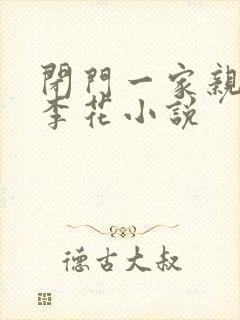 閉門一家親
李花小説
德古大叔